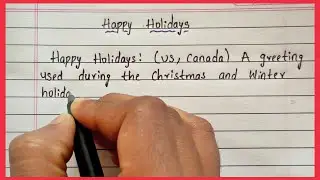 Happy Holidays
Happy Holidays: (US, Canada) A greeting
used during the Christmas and Winter
holida